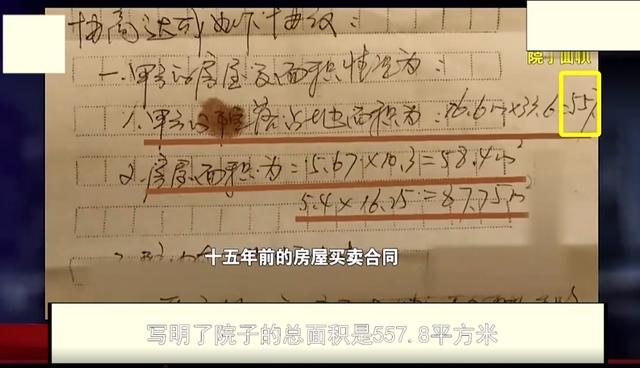 协商达成如下协议：
院子面积
一.甲方的房屋及面积情况为：
1.甲方的院落占地面积为：16.6m×33.6=557
2.房屋面积为：5.67×10.3=58.4m²
5.4×16.25=87.75m²
十五年前的房屋买卖合同
写明了院子的总面积是557.8平方米